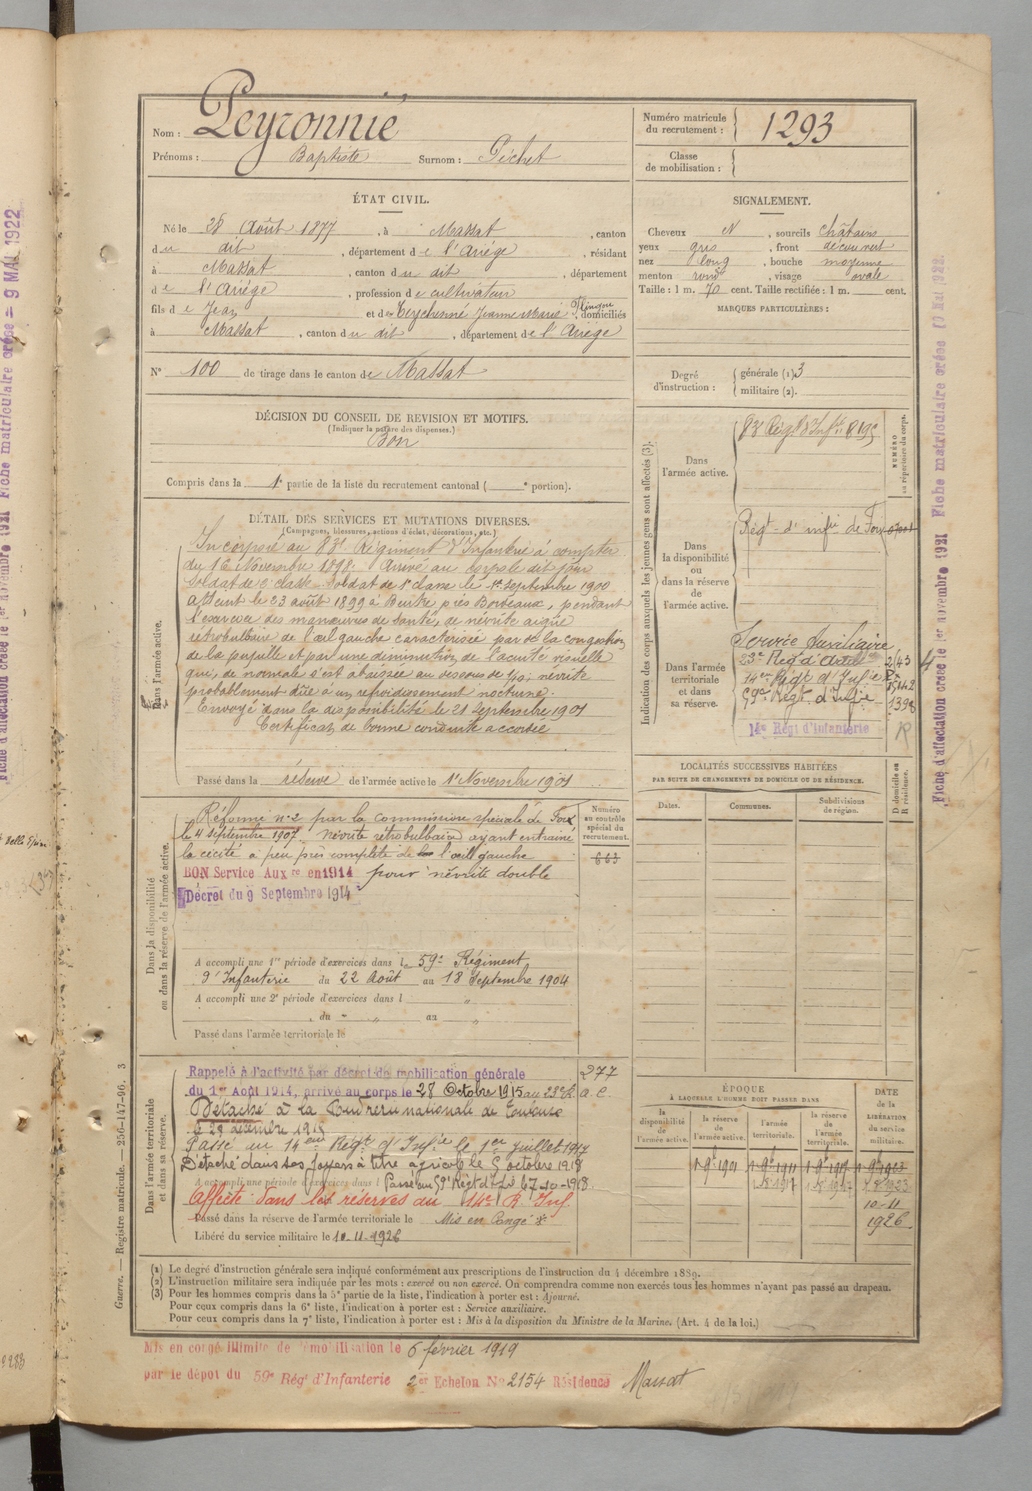 Nom : Peyronnie
Prénoms : Baptiste Surnom : Péchet
Numéro matricule du recrutement : 1293
Classe de mobilisation :
ÉTAT CIVIL.
Né le 28 Août 1877, à Massat, canton
du dit, département de l'Ariège, résidant
à Massat, canton du dit, département
de l'Ariège, profession de cultivateur
fils de Jean et de Jeanne Marie, domiciliés
à Massat, canton du dit, département de l'Ariège
N° 100 de tirage dans le canton de Massat
SIGNALEMENT.
Cheveux N, sourcils châtains
yeux gris, front découvert
nez long, bouche moyenne
menton rond, visage ovale
Taille : 1 m. 70 cent. Taille rectifiée : 1 m. cent.
MARQUES PARTICULIÈRES :
Degré d'instruction : générale (1) 3
militaire (2).
DÉCISION DU CONSEIL DE REVISION ET MOTIFS.
(Indiquer la nature des dispenses.)
Bon
Compris dans la 1e partie de la liste du recrutement cantonal ( e portion).
DÉTAIL DES SERVICES ET MUTATIONS DIVERSES.
(Campagnes, blessures, actions d'éclat, décorations, etc.)
Dans l'armée active.
Incorporé au 83e Régiment d'Infanterie à compter
du 16 Novembre 1898. Arrivé au corps le dit jour
Soldat de 2e classe. Soldat de 1e classe le 1er septembre 1900
Atteint le 23 août 1899 à près Bordeaux, pendant
l'exercice des manœuvres de santé, de névrite aigüe
rétrobulbaire de l'œil gauche caractérisée par de la congestion
de la pupille et par une diminution de l'acuité visuelle
qui, de normale s'est abaissée au dessous de 1/10; névrite
probablement dûe à un refroidissement nocturne.
Envoyé dans la disponibilité le 21 Septembre 1901
Certificat de bonne conduite accordé
Passé dans la réserve de l'armée active le 1er Novembre 1901
Dans la disponibilité ou dans la réserve de l'armée active.
Réformé n° 2 par la commission spéciale de Foix
le 4 septembre 1907. Névrite rétrobulbaire ayant entrainé
la cécité a peu près complète de l'œil gauche
BON Service Aux re en 1914 pour névrite double
Décret du 9 Septembre 1914
Numéro au contrôle spécial du recrutement.
663
A accompli une 1re période d'exercices dans le 59e Régiment
d'Infanterie du 22 Août au 18 Septembre 1904
A accompli une 2e période d'exercices dans l "
, du " " au "
Passé dans l'armée territoriale le
Dans l'armée territoriale et dans sa réserve.
Rappelé à l'activité par décret de mobilisation générale
du 1er Août 1914, arrivé au corps le 28 Octobre 1915 au 23e R. a. c.
277
Détaché à la Poudrerie nationale de Toulouse
le 28 décembre 1915
Passé au 14ème Régt d'Infie le 1er juillet 1917
Détaché dans ses foyers à titre agricole le 5 octobre 1918
A accompli une période d'exercices dans l
Affecté dans les réserves au 14e R. Inf.
Passé dans la réserve de l'armée territoriale le Mis en Congé
Libéré du service militaire le 10-11-1926
Indication des corps auxquels les jeunes gens sont affectés (3).
NUMÉRO au répertoire du corps.
Dans l'armée active.
83 Régt d'Infie
Dans la disponibilité ou dans la réserve de l'armée active.
Régt d'infie de Foix
Dans l'armée territoriale et dans sa réserve.
Service Auxiliaire
23e Régt d'Artie
14e Régt d'Infie
59e Régt d'Infie 1398
14e Régt d'Infanterie
LOCALITÉS SUCCESSIVES HABITÉES
PAR SUITE DE CHANGEMENTS DE DOMICILE OU DE RÉSIDENCE.
Dates. Communes. Subdivisions de région. D domicile ou R résidence.
ÉPOQUE
À LAQUELLE L'HOMME DOIT PASSER DANS
la disponibilité de l'armée active. la réserve de l'armée active. l'armée territoriale. la réserve de l'armée territoriale.
DATE de la LIBÉRATION du service militaire.
1-9bre 1901 1-9bre 1911
10-11
1926
(1) Le degré d'instruction générale sera indiqué conformément aux prescriptions de l'instruction du 4 décembre 1889.
(2) L'instruction militaire sera indiquée par les mots : exercé ou non exercé. On comprendra comme non exercés tous les hommes n'ayant pas passé au drapeau.
(3) Pour les hommes compris dans la 5e partie de la liste, l'indication à porter est : Ajourné.
Pour ceux compris dans la 6e liste, l'indication à porter est : Service auxiliaire.
Pour ceux compris dans la 7e liste, l'indication à porter est : Mis à la disposition du Ministre de la Marine. (Art. 4 de la loi.)
Mis en congé illimité de démobilisation le 6 février 1919
par le dépôt du 59e Régt d'Infanterie 2e Echelon No 2154 Résidence Massat
Guerre. — Registre matricule. — 256-147-96. 3
Fiche d'affectation créée le 1er novembre 1921 Fiche matriculaire créée = 9 MAI 1922
Fiche d'affectation créée le 1er novembre 1921 Fiche matriculaire créée 9 Mai 1922.